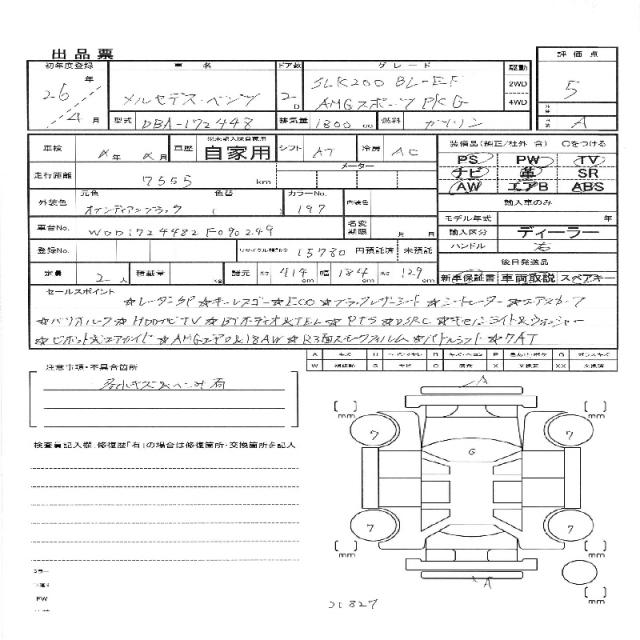 出品票
初年度登録 車名 ドア数 グレード 駆動 評価点
26年 4月 メルセデス・ベンツ 2D SLK200 BL-EF 2WD 5
AMGスポーツPKG 4WD A
型式 DBA-172448 排気量 1800 cc 燃料 ガソリン
車検 年 月 車歴 自家用 シフト AT 冷房 AC 装備品(純正/社外 含) ○をつける
メーター PS PW TV
走行距離 7555 km ナビ 革 SR
AW エアB ABS
元色 色替 カラーNo. 輸入車のみ
外装色 オブシディアンブラック ( ) 197 内装色 モデル年式 年
車台No. WDD1724482F090249 名変期限 月 日 輸入区分 ディーラー
登録No. リサイクル預託金 15780 円預託済 未預託 ハンドル 右
後日発送品
定員 2人 諸元 長さ 414 cm 幅 184 cm 高さ 129 cm 新車保証書 車両取説 スペアキー
セールスポイント
☆レーダーSP☆キーレスゴー☆ECO☆ブラックレザーシート☆シートヒーター☆エアスカーフ
☆バリオルーフ☆HDDナビTV☆BTオーディオ&TEL☆PTS☆DSRC☆キセノンライト&ウォッシャー
☆AMGエアロ&18AW☆R3面スモークフィルム☆パドルシフト☆7AT
注意事項・不具合箇所
検査員記入欄、修復歴「有」の場合は修復箇所・交換箇所を記入
A
[ ] mm [ ] mm
7 7
G
7 7
[ ] mm [ ] mm
A
[ ] mm
31827